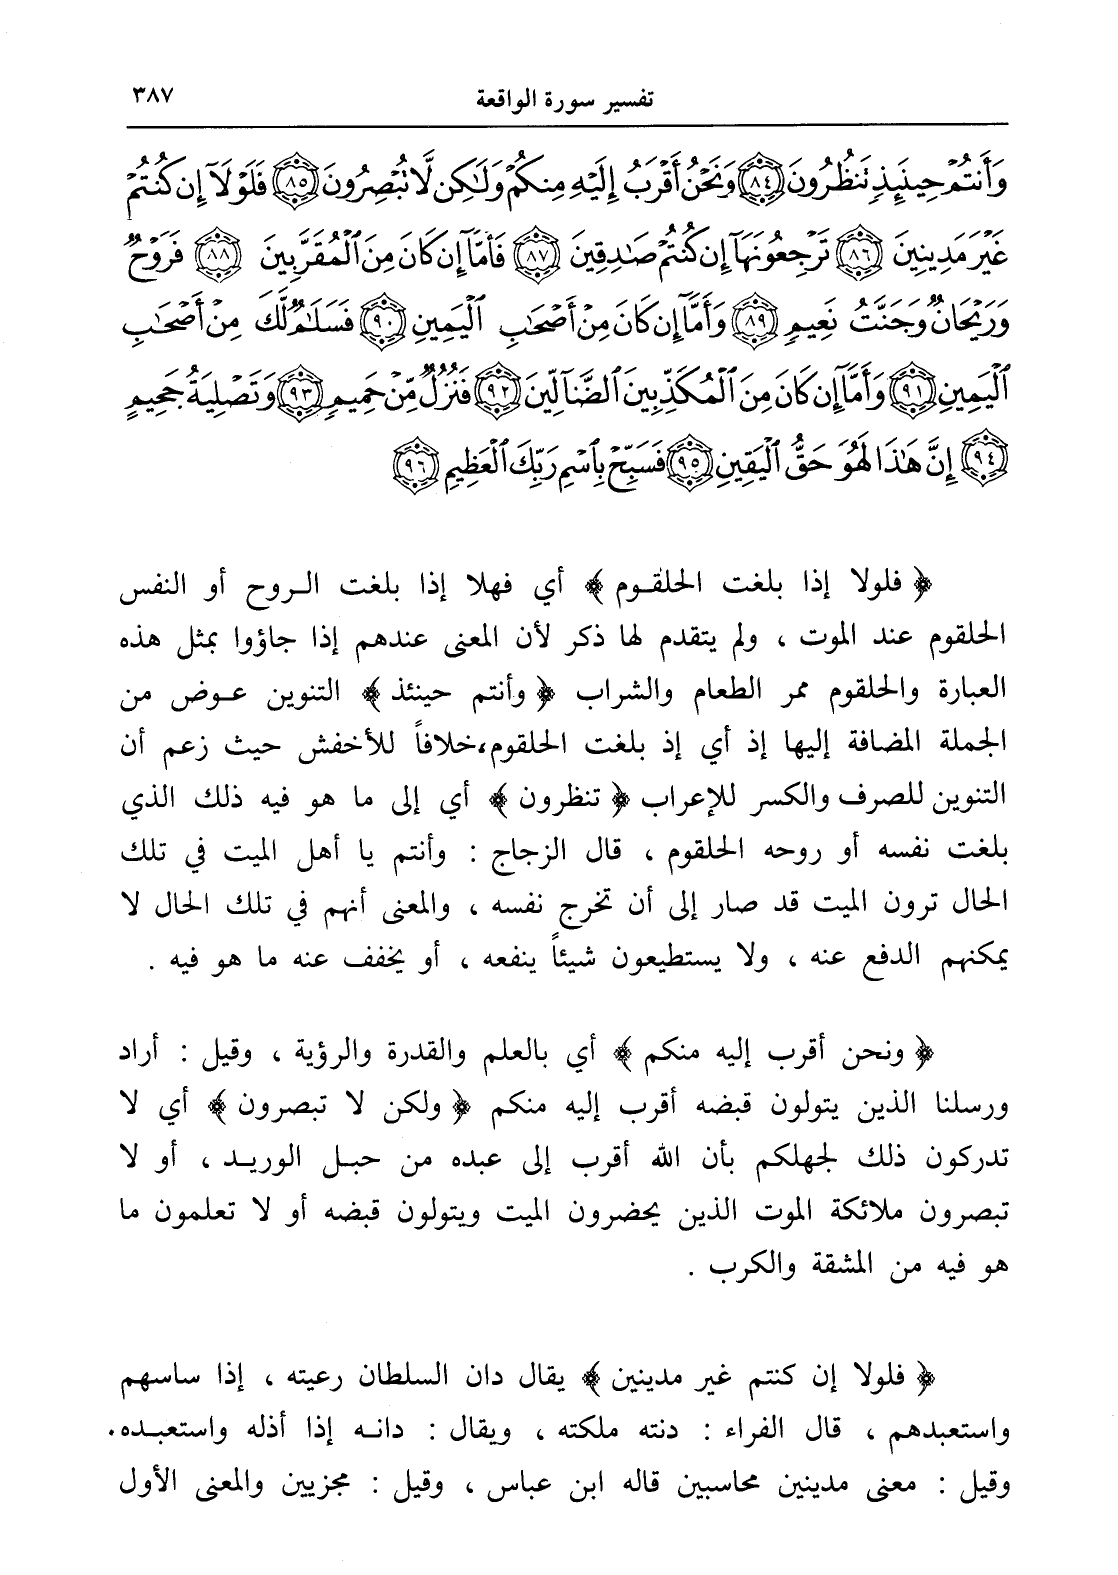 تفسير سورة الواقعة ٣٨٧
وَأَنتُمْ حِينَئِذٍ تَنظُرُونَ ﴿٨٤﴾ وَنَحْنُ أَقْرَبُ إِلَيْهِ مِنكُمْ وَلَٰكِن لَّا تُبْصِرُونَ ﴿٨٥﴾ فَلَوْلَا إِن كُنتُمْ
غَيْرَ مَدِينِينَ ﴿٨٦﴾ تَرْجِعُونَهَا إِن كُنتُمْ صَٰدِقِينَ ﴿٨٧﴾ فَأَمَّا إِن كَانَ مِنَ ٱلْمُقَرَّبِينَ ﴿٨٨﴾ فَرَوْحٌ
وَرَيْحَانٌ وَجَنَّتُ نَعِيمٍ ﴿٨٩﴾ وَأَمَّا إِن كَانَ مِنْ أَصْحَٰبِ ٱلْيَمِينِ ﴿٩٠﴾ فَسَلَٰمٌ لَّكَ مِنْ أَصْحَٰبِ
ٱلْيَمِينِ ﴿٩١﴾ وَأَمَّا إِن كَانَ مِنَ ٱلْمُكَذِّبِينَ ٱلضَّآلِّينَ ﴿٩٢﴾ فَنُزُلٌ مِّنْ حَمِيمٍ ﴿٩٣﴾ وَتَصْلِيَةُ جَحِيمٍ
﴿٩٤﴾ إِنَّ هَٰذَا لَهُوَ حَقُّ ٱلْيَقِينِ ﴿٩٥﴾ فَسَبِّحْ بِٱسْمِ رَبِّكَ ٱلْعَظِيمِ ﴿٩٦﴾
﴿ فلولا إذا بلغت الحلقوم ﴾ أي فهلا إذا بلغت الروح أو النفس
الحلقوم عند الموت ، ولم يتقدم لها ذكر لأن المعنى عندهم إذا جاؤوا بمثل هذه
العبارة والحلقوم ممر الطعام والشراب ﴿ وأنتم حينئذ ﴾ التنوين عوض من
الجملة المضافة إليها إذ أي إذ بلغت الحلقوم،خلافاً للأخفش حيث زعم أن
التنوين للصرف والكسر للإعراب ﴿ تنظرون ﴾ أي إلى ما هو فيه ذلك الذي
بلغت نفسه أو روحه الحلقوم ، قال الزجاج : وأنتم يا أهل الميت في تلك
الحال ترون الميت قد صار إلى أن تخرج نفسه ، والمعنى أنهم في تلك الحال لا
يمكنهم الدفع عنه ، ولا يستطيعون شيئاً ينفعه ، أو يخفف عنه ما هو فيه .
﴿ ونحن أقرب إليه منكم ﴾ أي بالعلم والقدرة والرؤية ، وقيل : أراد
ورسلنا الذين يتولون قبضه أقرب إليه منكم ﴿ ولكن لا تبصرون ﴾ أي لا
تدركون ذلك لجهلكم بأن الله أقرب إلى عبده من حبل الوريد ، أو لا
تبصرون ملائكة الموت الذين يحضرون الميت ويتولون قبضه أو لا تعلمون ما
هو فيه من المشقة والكرب .
﴿ فلولا إن كنتم غير مدينين ﴾ يقال دان السلطان رعيته ، إذا ساسهم
واستعبدهم ، قال الفراء : دنته ملكته ، ويقال : دانه إذا أذله واستعبده .
وقيل : معنى مدينين محاسبين قاله ابن عباس ، وقيل : مجزيين والمعنى الأول